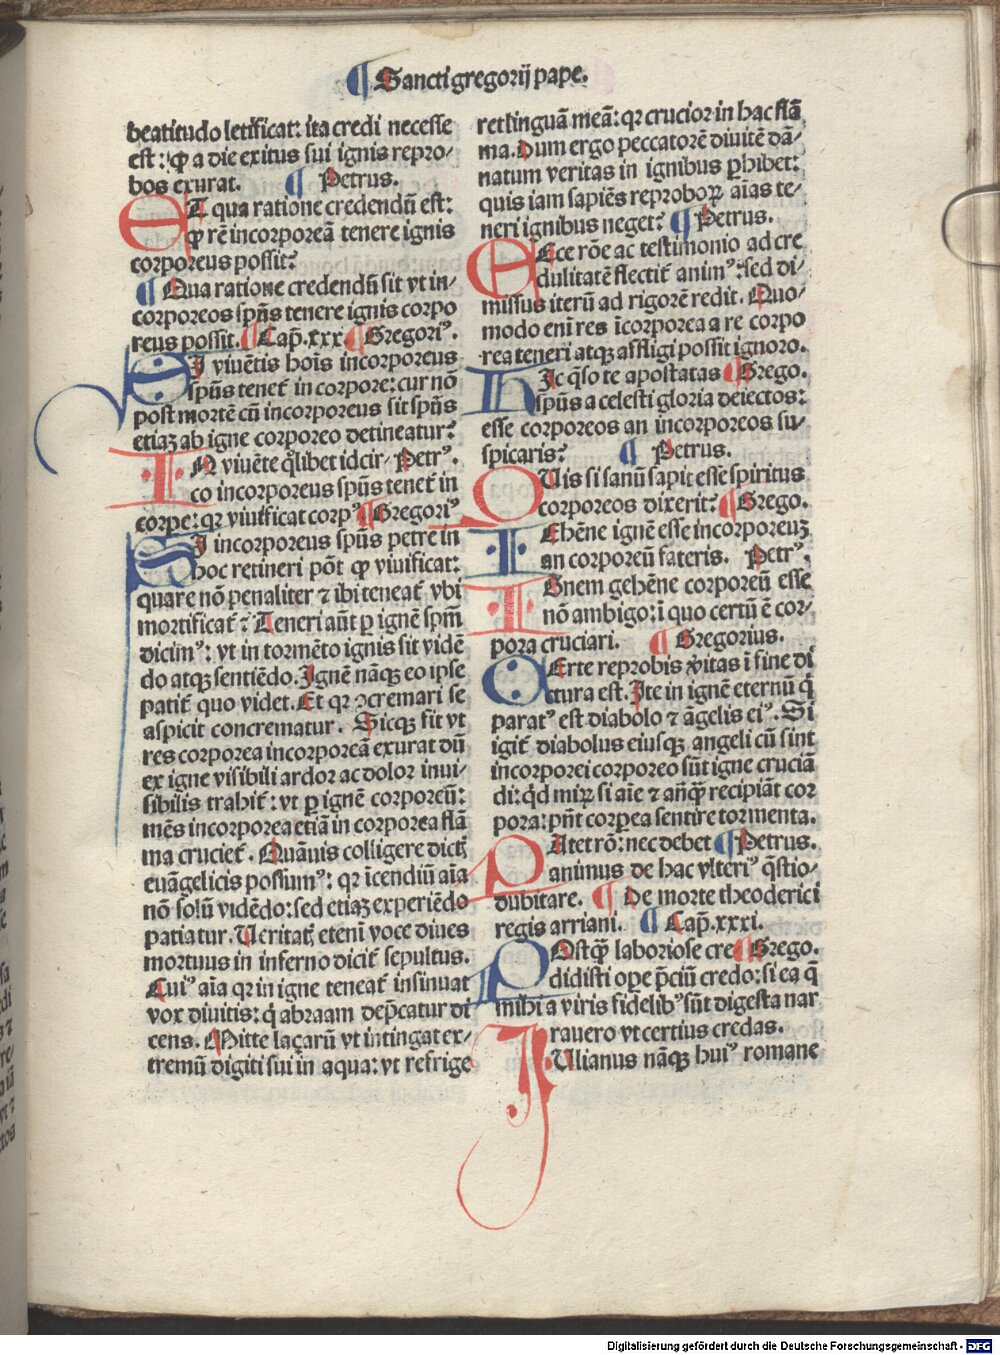 ¶ Sancti gregorij pape.
beatitudo letificat: ita credi necesse
est: ꝙ a die exitus sui ignis repro/
bos exurat. ¶ Petrus.
ET qua ratione credendū est:
ꝙ rē incorporeā tenere ignis
corporeus possit?
¶ Qua ratione credendū sit vt in/
corporeos spūs tenere ignis corpo
reus possit. ¶ Cap̄. xxx ¶ Gregoriꝰ.
SI viuētis hoīs incorporeus
spūs tenet̄ in corpore: cur nō
post mortē cū incorporeus sit spūs
etiaꝫ ab igne corporeo detineatur?
IN viuēte q̄libet idcir/ Petrꝰ.
co incorporeus spūs tenet̄ in
corpe: qꝛ viuificat corpꝰ ¶ Gregoriꝰ
SI incorporeus spūs petre in
hoc retineri pōt ꝙ viuificat:
quare nō penaliter ⁊ ibi teneat̄ vbi
mortificat̄? Teneri aūt ꝑ ignē spm̄
dicimꝰ: vt in tormēto ignis sit vidē
do atqꝫ sentiēdo. Ignē nāqꝫ eo ipse
patit̄ quo videt. Et qꝛ ꝯcremari se
aspicit concrematur. Sicqꝫ fit vt
res corporea incorporeā exurat dū
ex igne visibili ardor ac dolor inui/
sibilis trahit̄: vt ꝑ ignē corporeū:
mēs incorporea etiā in corporea flā
ma cruciet̄. Quāuis colligere dictꝭ
euāgelicis possumꝰ: qꝛ īcendiū aīa
nō solū vidēdo: sed etiaꝫ experiēdo
patiatur. Ueritatꝭ etenī voce diues
mortuus in inferno dicit̄ sepultus.
Cuiꝰ aīa qꝛ in igne teneat̄ insinuat
vox diuitis: q̄ abraam dep̄catur di
cens. Mitte laçarū vt intingat ex/
tremū digiti sui in aqua: vt refrige
ret linguā meā: qꝛ crucior in hac flā
ma. Dum ergo peccatorē diuitē dā/
natum veritas in ignibus ꝑhibet:
quis iam sapiēs reproboꝝ aīas te/
neri ignibus neget? ¶ Petrus.
ECce rōe ac testimonio ad cre
dulitatē flectit̄ animꝰ: sed di/
missus iterū ad rigorē redit. Quo/
modo enī res īcorporea a re corpo
rea teneri atqꝫ affligi possit ignoro.
DIc q̄so te apostatas ¶ Grego.
spūs a celesti gloria deiectos:
esse corporeos an incorporeos su/
spicaris? ¶ Petrus.
QUis si sanū sapit esse spiritus
corporeos dixerit? ¶ Grego.
GEhēne ignē esse incorporeuꝫ
an corporeū fateris. Petrꝰ.
IGnem gehēne corporeū esse
nō ambigo: ī quo certū ē cor/
pora cruciari. ¶ Gregorius.
CErte reprobis v̄itas ī fine di
ctura est. Ite in ignē eternū q̄
paratꝰ est diabolo ⁊ āgelis eiꝰ. Si
igit̄ diabolus eiusqꝫ angeli cū sint
incorporei corporeo sūt igne cruciā
di: qd̄ miꝝ si aīe ⁊ anq̄ꝫ recipiāt cor
pora: pn̄t corꝑea sentire tormenta.
PAtet rō: nec debet ¶ Petrus.
animus de hac vlteriꝰ q̄stio/
dubitare. ¶ De morte theoderici
regis arriani. ¶ Cap̄. xxxi.
POstꝙ̄ laboriose cre ¶ Grego.
didisti ope p̄ciū credo: si ea q̄
mihi a viris fidelibꝰ sūt digesta nar
rauero vt certius credas.
IUlianus nāqꝫ huiꝰ romane
Digitalisierung gefördert durch die Deutsche Forschungsgemeinschaft - DFG